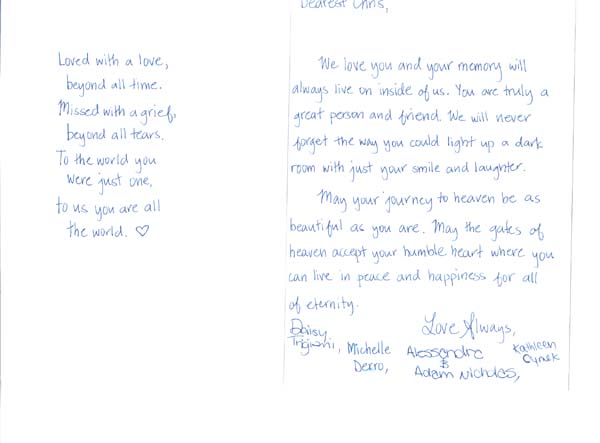 Loved with a love,
beyond all time.
Missed with a grief,
beyond all tears.
To the world you
were just one,
to us you are all
the world. ♡
Dearest Chris,
We love you and your memory will
always live on inside of us. You are truly a
great person and friend. We will never
forget the way you could light up a dark
room with just your smile and laughter.
May your journey to heaven be as
beautiful as you are. May the gates of
heaven accept your humble heart where you
can live in peace and happiness for all
of eternity.
Love Always,
Daisy
Michelle
Alessandra
&
Adam Nicholas,
Kathleen